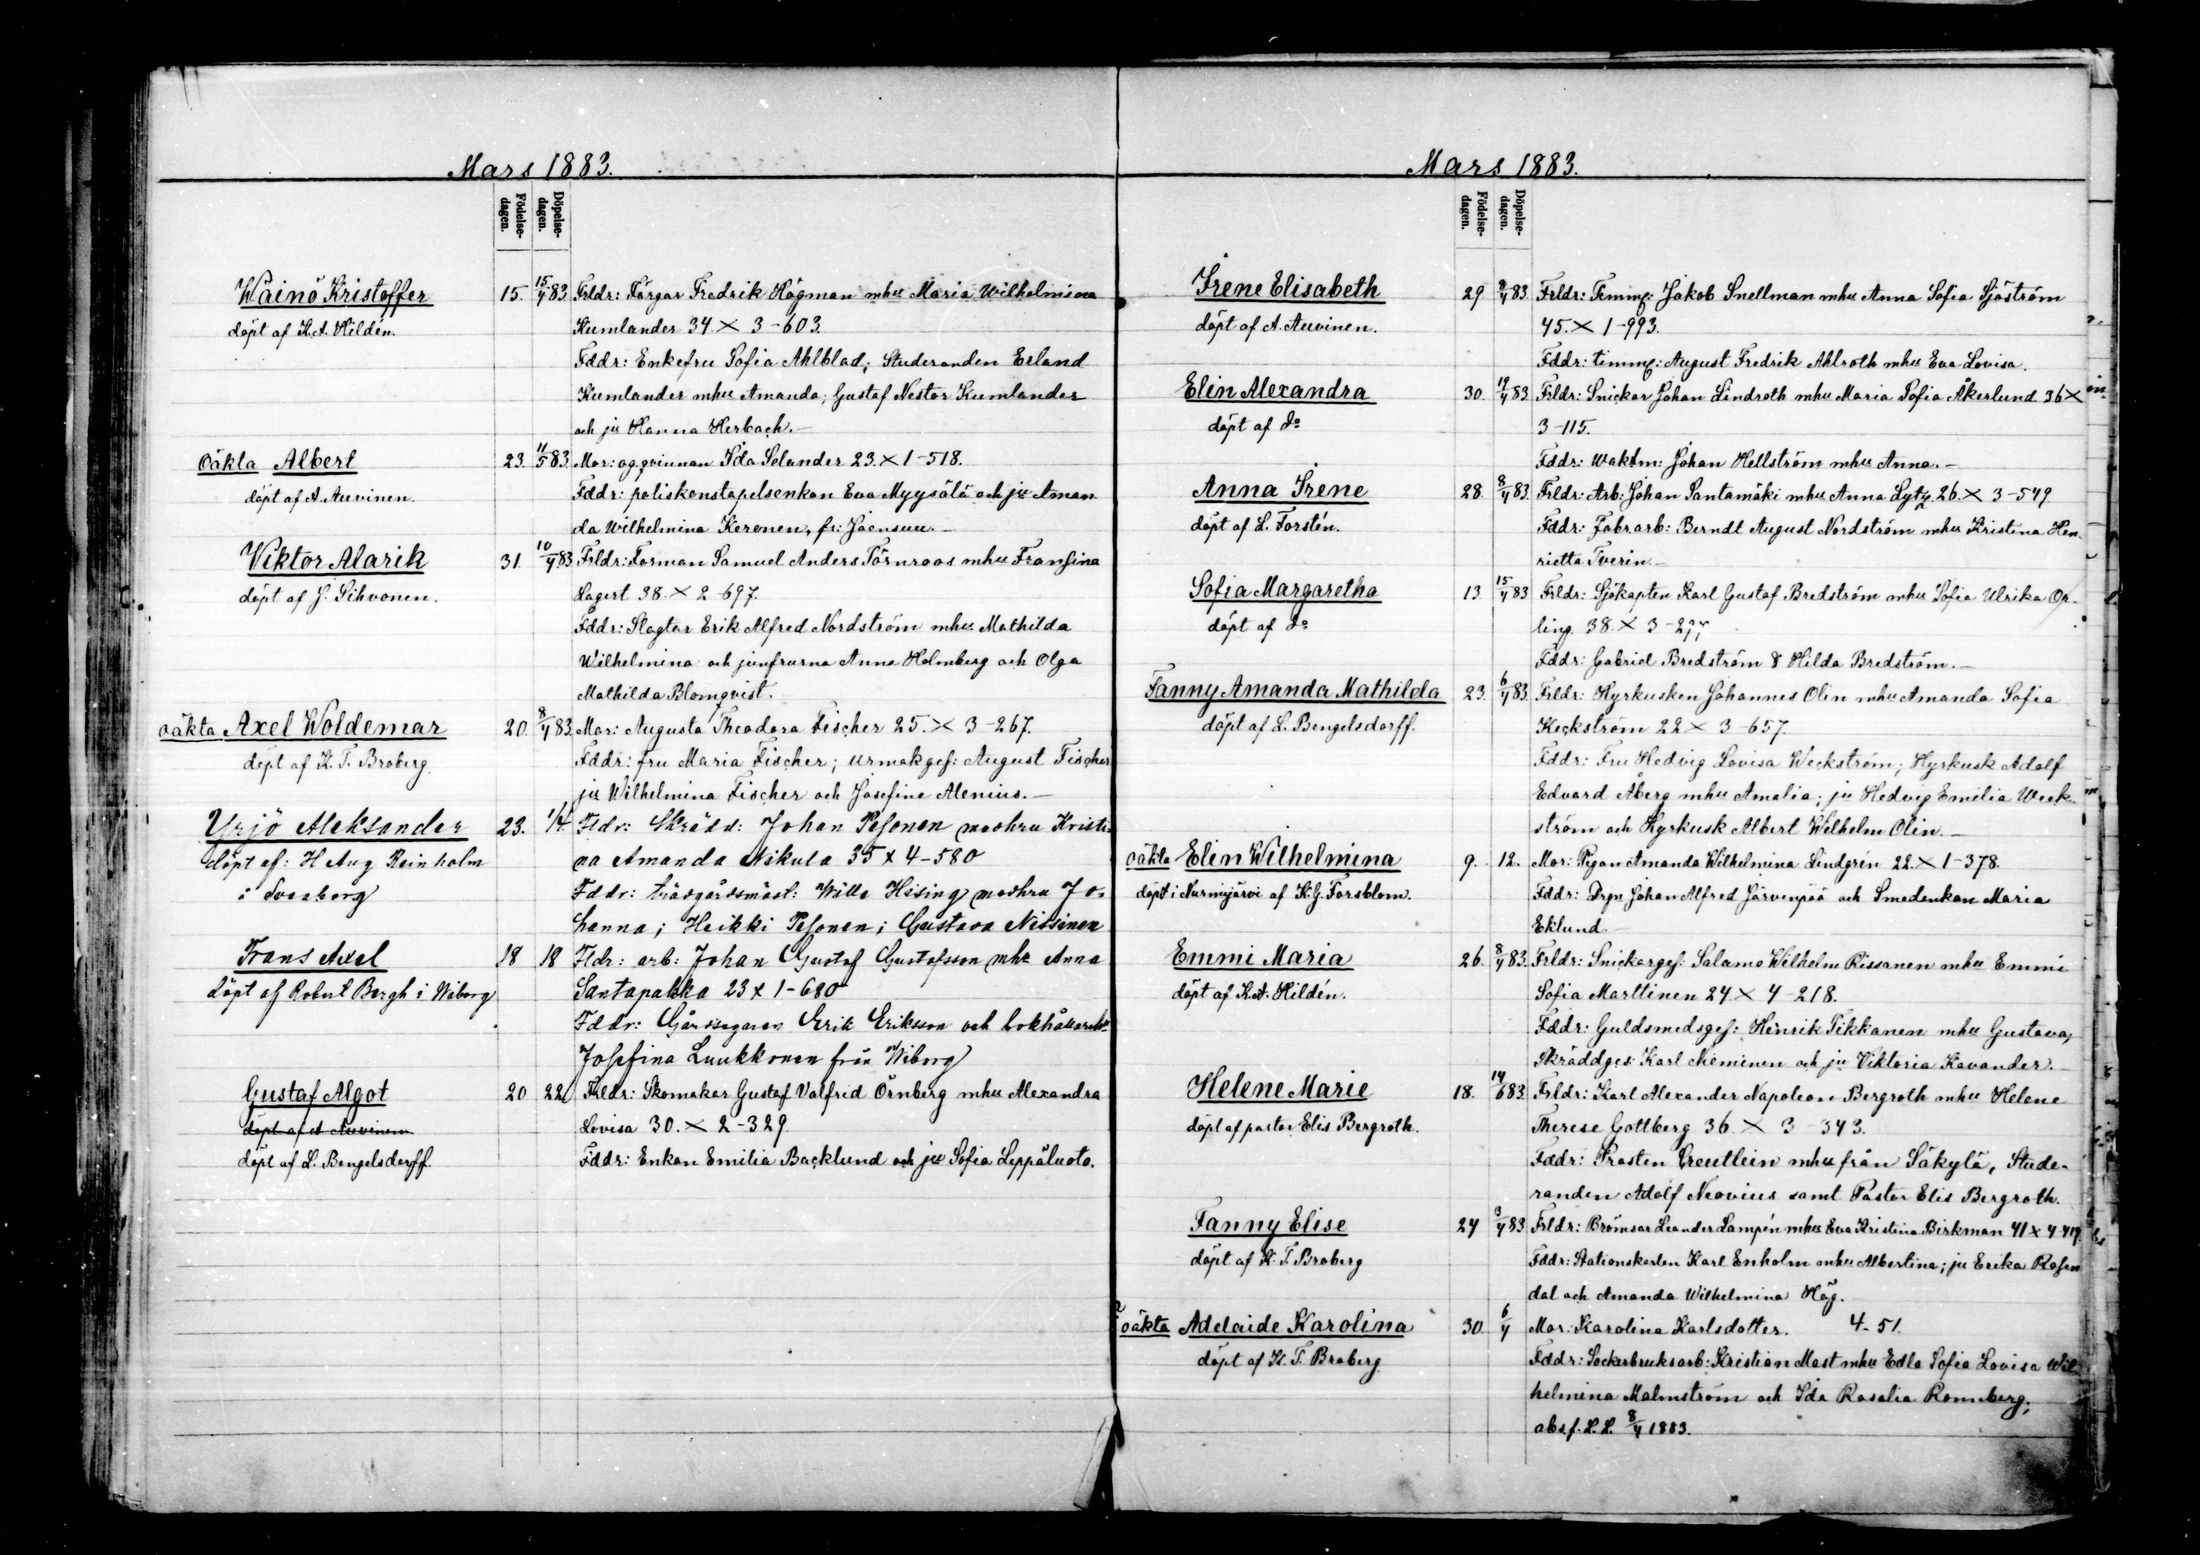 Mars 1883.
Födelse-
dagen.
Döpelse-
dagen.
Wäinö Kristoffer 15. 15/4 83 Frldr: Färgar Fredrik Högman mhu Maria Wilhelmina
döpt af K. A. Hildén. Kumlander 34 × 3-603.
Fddr: Enkefru Sofia Ahlblad; Studeranden Erland
Kumlander mhu Amanda; Gustaf Nestor Kumlander
och ju Hanna Herbach.—
oäkta Albert 23. 11/5 83. Mor: qvinnan Ida Selander 23. × 1-518.
döpt af A. Auvinen. Fddr: poliskonstapelsenkan Eva Myysälä och ju Aman
da Wilhelmina Keronen, fr: Joensuu.—
Viktor Alarik 31. 10/4 83 Frldr: Forman Samuel Anders Törnroos mhu Fransina
döpt af J. Sihvonen. Lagert 38. × 2-697.
Fddr: Slagtar Erik Alfred Nordström mhu Mathilda
Wilhelmina och jungfrurna Anna Holmberg och Olga
Mathilda Blomqvist.
oäkta Axel Woldemar 20. 8/4 83. Mor: Augusta Theodora Fischer 25. × 3-267.
döpt af K. T. Broberg. Fddr: fru Maria Fischer; urmakges: August Fischer
ju Wilhelmina Fischer och Josefine Alenius.—
Yrjö Aleksander 23. 1/4. Fldr: Skrädd: Johan Pesonen mashru Kristi
döpt af: H Aug Reinholm na Amanda Nikula 35 × 4-580
i Sveaborg Fddr: trädgårdsmäst: Wille Hising mashru Jo-
hanna; Heikki Pesonen; Gustava Nissinen
Frans Axel 18 18 Fldr: arb: Johan Gustaf Gustafsson mhu Anna
döpt af Robert Bergh i Wiborg Santapakka 23 × 1-680
Fddr: Gårdsegaren Erik Eriksson och bokhållare
Josefina Luukkonen frå Wiborg
Gustaf Algot 20 22. Frldr: Skomakar Gustaf Valfrid Örnberg mhu Alexandra
döpt af A Auvinen Lovisa 30. × 2-329.
döpt af L. Bengelsdorff. Fddr: Enkan Emilia Backlund och ju Sofia Leppäluoto.
Mars 1883.
Födelse-
dagen.
Döpelse-
dagen.
Irene Elisabeth 29 8/4 83. Frldr: Timmg: Jakob Snellman mhu Anna Sofia Sjöström
döpt af A. Auvinen. 45. × 1-993.
Fddr: timmg: August Fredrik Ahlroth mhu Eva Lovisa.
Elin Alexandra 30. 83. Frldr: Snickar Johan Lindroth mhu Maria Sofia Åkerlund 36 ×
döpt af do 3-115.
Fddr: Waktm: Johan Hellström mhu Anna.—
Anna Irene 28. 8/4 83. Frldr: Arb: Johan Santamäki mhu Anna 26. × 3-549
döpt af L. Forstén. Fddr: Fabrarb: Berndt August Nordström mhu Kristina Hen-
rietta Tverin.—
Sofia Margaretha 13. 15/4 83 Frldr: Sjökapten Karl Gustaf Bredström mhu Sofia Ulrika Op-
döpt af do ling. 38. × 3-277.
Fddr: Gabriel Bredström & Hilda Bredström.—
Fanny Amanda Mathilda 23. 6/4 83. Frldr: Hyrkusken Johannes Olin mhu Amanda Sofia
döpt af L. Bengelsdorff. Keckström 22 × 3-657.
Fddr: Fru Hedvig Lovisa Weckström; Hyrkusk Adolf
Edvard Åberg mhu Amalia; ju Hedvig Emilia Weck-
ström och Hyrkusk Albert Wilhelm Olin.—
oäkta Elin Wilhelmina 9. 12. Mor: Pigan Amanda Wilhelmina Lindgrén 22. × 1-378.
döpt i Nurmijärvi af K. G. Forsblom. Fddr: Drgn Johan Alfred Järvenpää och Smedenkan Maria
Eklund.—
Emmi Maria 26. 8/4 83. Frldr: Snickarges: Salomo Wilhelm Rissanen mhu Emmi
döpt af K. A. Hildén. Sofia Marttinen 24. × 4-218.
Fddr: Guldsmedsges: Henrik Tikkanen mhu Gustava,
Skräddges Karl Nieminen och ju Viktoria Kavander.—
Helene Marie 18. 14/6 83. Frldr: Karl Alexander Napoleon Bergroth mhu Helene
döpt af pastor Elis Bergroth. Therese Gottberg 36. × 3-343.
Fddr: Prosten Creutlein mhu från Säkylä, Stude-
randen Adolf Neovius samt Pastor Elis Bergroth.
Fanny Elise 24 3/4 83 Frldr: Bromsar Leander Lampén mhu Eva Kristina Birkman 41 × 4-419.
döpt af K. T. Broberg Fddr: Stationskarlen Karl Enholm mhu Albertina; ju Erika Rosen
dal och Amanda Wilhelmina Hög.
oäkta Adelaide Karolina 30. 6/4 Mor: Karolina Karlsdotter. 4-51.
döpt af K. T. Broberg Fddr: Sockerbruksarb: Kristian Mast mhu Edla Sofia Lovisa Wil-
helmina Malmström och Ida Rosalia Romberg;
abs. f. L. L. 8/4 1883.